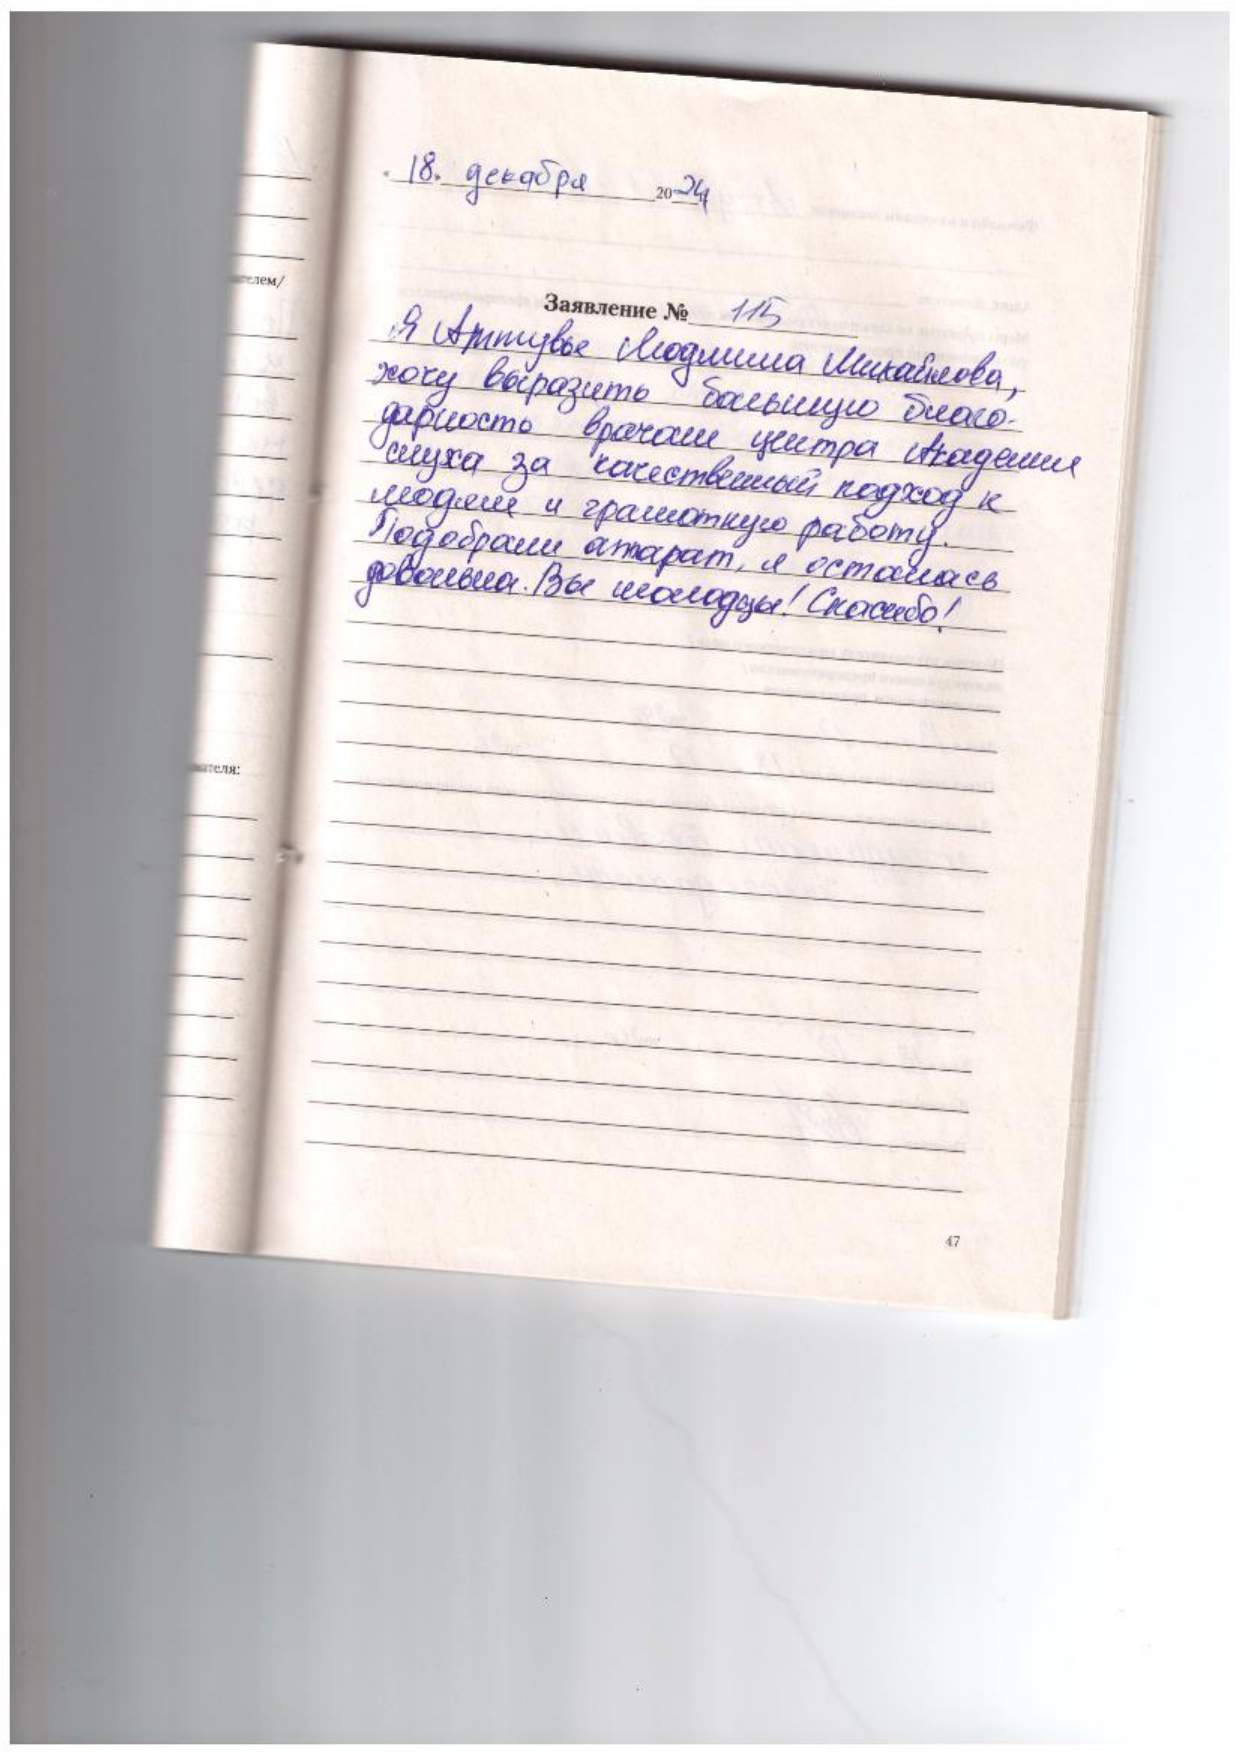 18. декабря 2024
ателем/
Заявление № 115
Я Людмила Михайловна,
хочу выразить большую благо-
дарность врачам центра Академии
слуха за качественный подход к
людям и грамотную работу.
Подобрали аппарат, я осталась
довольна. Вы молодцы! Спасибо!
вателя:
47